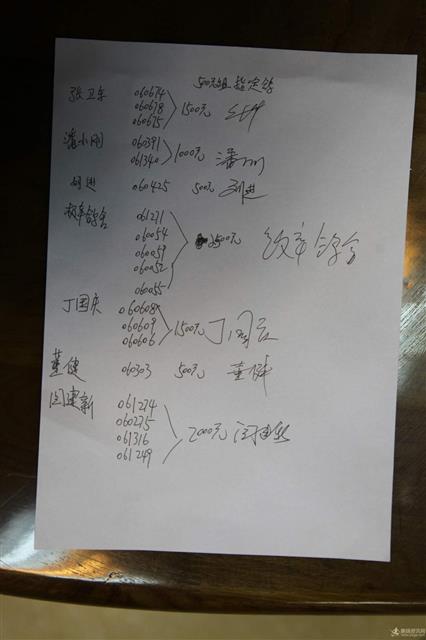 500元组指定鸽
张卫东 060674
060678 1500元
060675
潘小刚 060391
061340 1000元 潘小刚
刘进 060425 500元 刘进
效率鸽舍 061271
060054
060051 2500元 效率鸽舍
060052
060055
丁国庆 060608
060609 1500元 丁国庆
060606
董健 060303 500元 董健
闫建新 061274
060275
061316 2000元 闫建新
061249